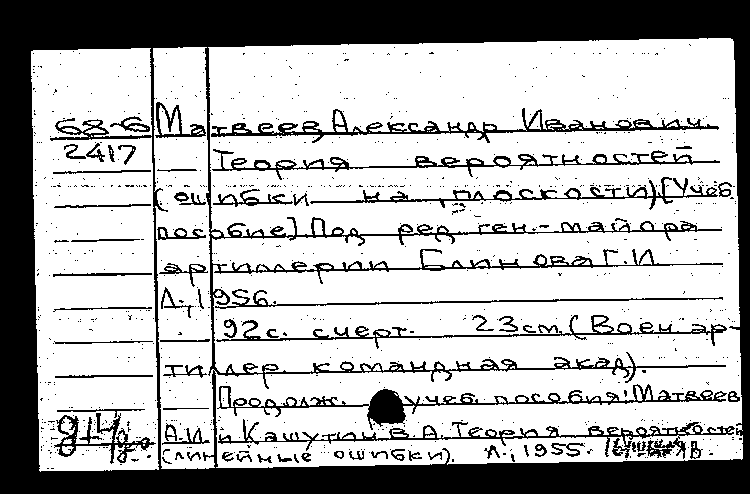 68-6 Матвеев, Александр Иванович.
2417 Теория вероятностей
(ошибки на плоскости) [Учеб.
пособие] Под ред. ген.-майора
артиллерии Блинова Г.И.
Л., 1956.
92 с. с черт. 23 см (Воен. ар-
тиллер. командная акад).
Продолж. учеб. пособия: Матвеев
А.И. и Кашутин В.А. Теория вероятностей
(линейные ошибки). Л., 1955.